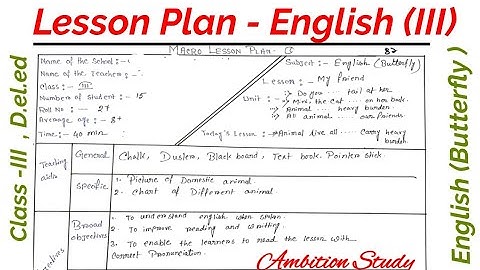 Lesson Plan - English (III)
Class -III , D.el.ed
English (Butterfly )
Macro Lesson Plan - 3
87
Name of the School :-
Name of the Teacher :-
Class :- III
Number of Student :- 15
Roll No :- 27
Average age :- 8+
Time :- 40 min
Subject :- English (Butterfly)
Lesson :- My friend
Unit :-
Do you ..... tail at her
Mini the Cat .... on her back.
Animal .... heavy burden.
All animal .... our friends.
Today's Lesson :- Animal live all ..... Carry heavy burden.
Teaching aids
General
Chalk, Duster, Black board, Text book, Pointer stick.
Specific
1. Picture of Domestic animal.
2. Chart of Different animal.
Objectives
Broad objectives
1. To understand english when spoken.
2. To improve reading and writting.
3. To enable the learners to read the lesson with
Correct Pronunciation.
Ambition Study